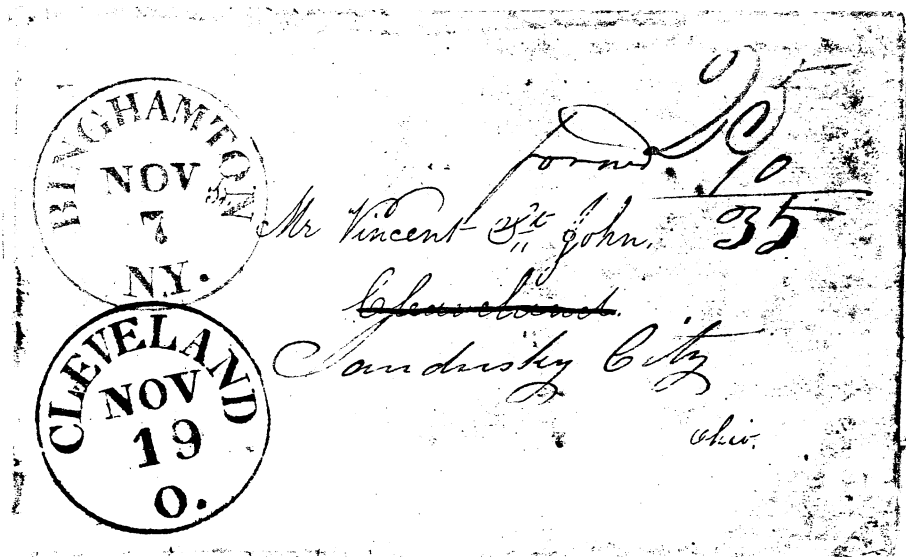 BINGHAMTON
NOV
7
N.Y.
CLEVELAND
NOV
19
O.
25
10
35
Mr Vincent St John.
Cleaveland.
Sandusky City
Ohio.